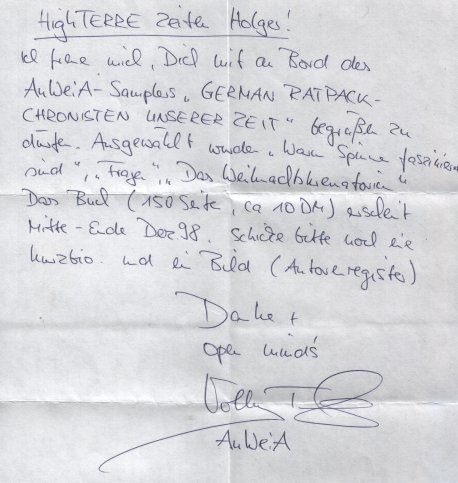 HighTERRE Zeiten Holger!
Ich freue mich, Dich mit an Bord des
AnWeiA-Samplers „GERMAN RATPACK-
CHRONISTEN UNSERER ZEIT" begrüßen zu
dürfen. Ausgewählt wurden „Wenn Spinne faszinierend
sind", „Fragen", „Das Weihnachtskrematorium"
Das Buch (150 Seite, ca 10 DM) erscheint
Mitte-Ende Dez 98. Schicke bitte noch eine
Kurzbio. und ein Bild (Autorenregister)
Danke +
open minds
AnWeiA